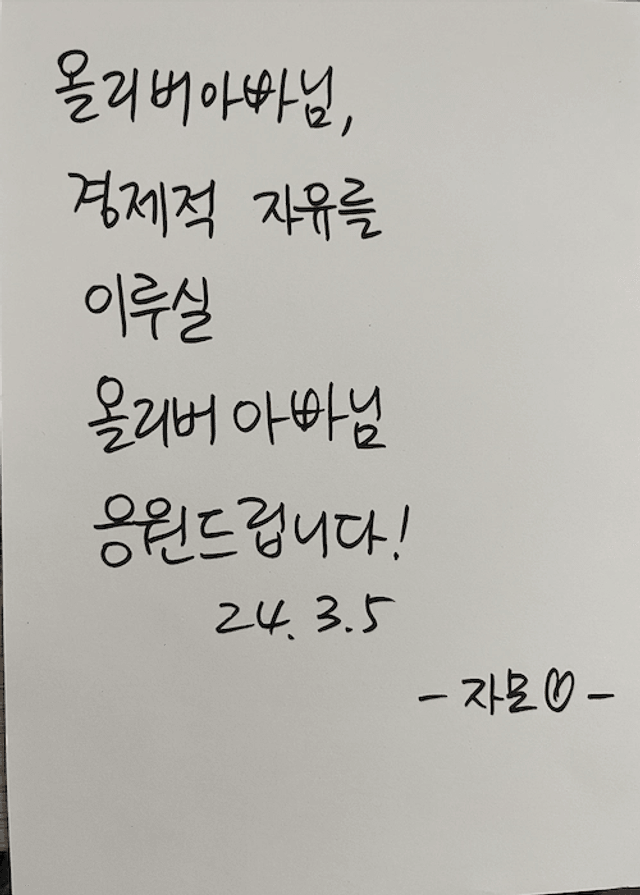 올리버아빠님,
경제적 자유를
이루실
올리버 아빠님
응원드립니다!
24. 3. 5
- 자모♡ -